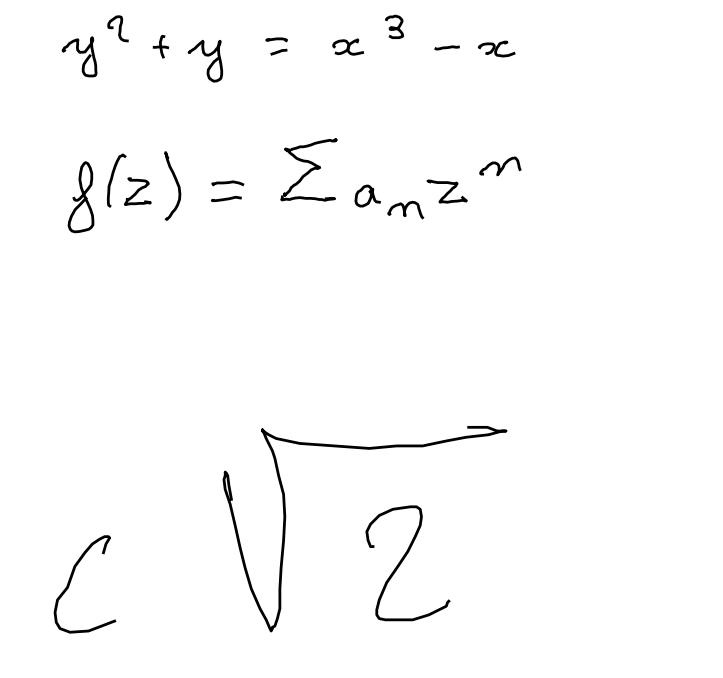 y² + y = x³ - x
f(z) = Σ aₙ zⁿ
c √2